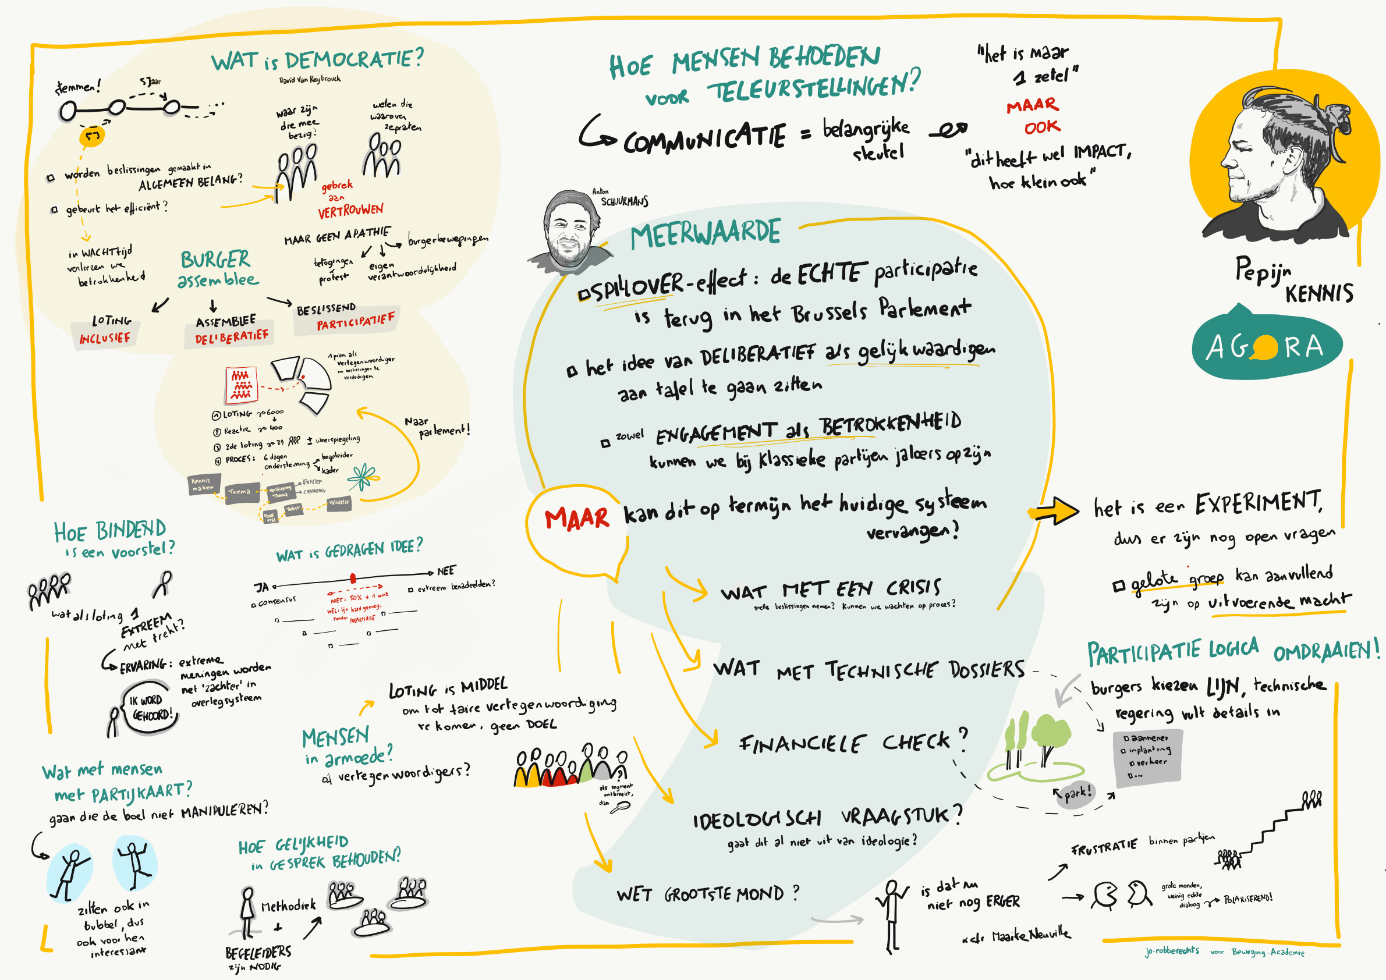 WAT is DEMOCRATIE?
David Van Reybrouck
stemmen!
5 Jaar
waar zijn
die mee
bezig?
weten die
waarover
ze praten
worden beslissingen gemaakt in
ALGEMEEN BELANG?
gebeurt het efficiënt?
gebrek
aan
VERTROUWEN
MAAR GEEN APATHIE
burgerbewegingen
betogingen
protest
eigen
verantwoordelijkheid
in WACHTtijd
verliezen we
betrokkenheid
BURGER
assemblee
LOTING
INCLUSIEF
ASSEMBLEE
DELIBERATIEF
BESLISSEND
PARTICIPATIEF
1 LOTING
2 Reactie
3 2de loting
± weerspiegeling
4 PROCES: 6 dagen
ondersteming
begeleider
kader
Kennis
maken
Thema
Naar
parlement!
HOE BINDEND
is een voorstel?
wat als loting 1
EXTREEM
met trekt?
ERVARING: extreme
meningen worden
net 'zachter' in
overlegsysteem
IK WORD
GEHOORD!
WAT is GEDRAGEN IDEE?
JA
NEE
consensus
extreem benadeelden?
NIET: 50% + 1 want
Wat met mensen
met PARTIJKAART?
gaan die de boel niet MANIPULEREN?
zitten ook in
bubbel, dus
ook voor hen
interessant
MENSEN
in armoede?
of vertegenwoordigers?
LOTING is MIDDEL
om tot faire vertegenwoordiging
te komen, geen DOEL
HOE GELIJKHEID
in GESPREK BEHOUDEN?
Methodiek
+
BEGELEIDERS
zijn NODIG
HOE MENSEN BEHOEDEN
VOOR TELEURSTELLINGEN?
COMMUNICATIE = belangrijke
sleutel
"het is maar
1 zetel"
MAAR
OOK
"dit heeft wel IMPACT,
hoe klein ook"
Anton
SCHUURMANS
MEERWAARDE
SPILLOVER-effect: de ECHTE participatie
is terug in het Brussels Parlement
het idee van DELIBERATIEF als gelijkwaardigen
aan tafel te gaan zitten
zowel ENGAGEMENT als BETROKKENHEID
kunnen we bij Klassieke partijen jaloers op zijn
MAAR kan dit op termijn het huidige systeem
vervangen?
WAT MET EEN CRISIS
snelle beslissingen nemen? Kunnen we wachten op proces?
WAT MET TECHNISCHE DOSSIERS
FINANCIELE CHECK?
IDEOLOGISCH VRAAGSTUK?
gaat dit al niet uit van ideologie?
WET GROOTSTE MOND?
is dat nu
niet nog ERGER
xdr Maaike Neuville
Pepijn
KENNIS
AGORA
het is een EXPERIMENT,
dus er zijn nog open vragen
gelote groep kan aanvullend
zijn op uitvoerende macht
PARTICIPATIE LOGICA OMDRAAIEN!
burgers kiezen LIJN, technische
regering vult details in
aannemer
inplanting
verkeer
...
park!
FRUSTRATIE binnen partijen
grote monden,
weinig echte
dialoog
POLARISEREND!
jo.robberechts voor Beweging.Academie